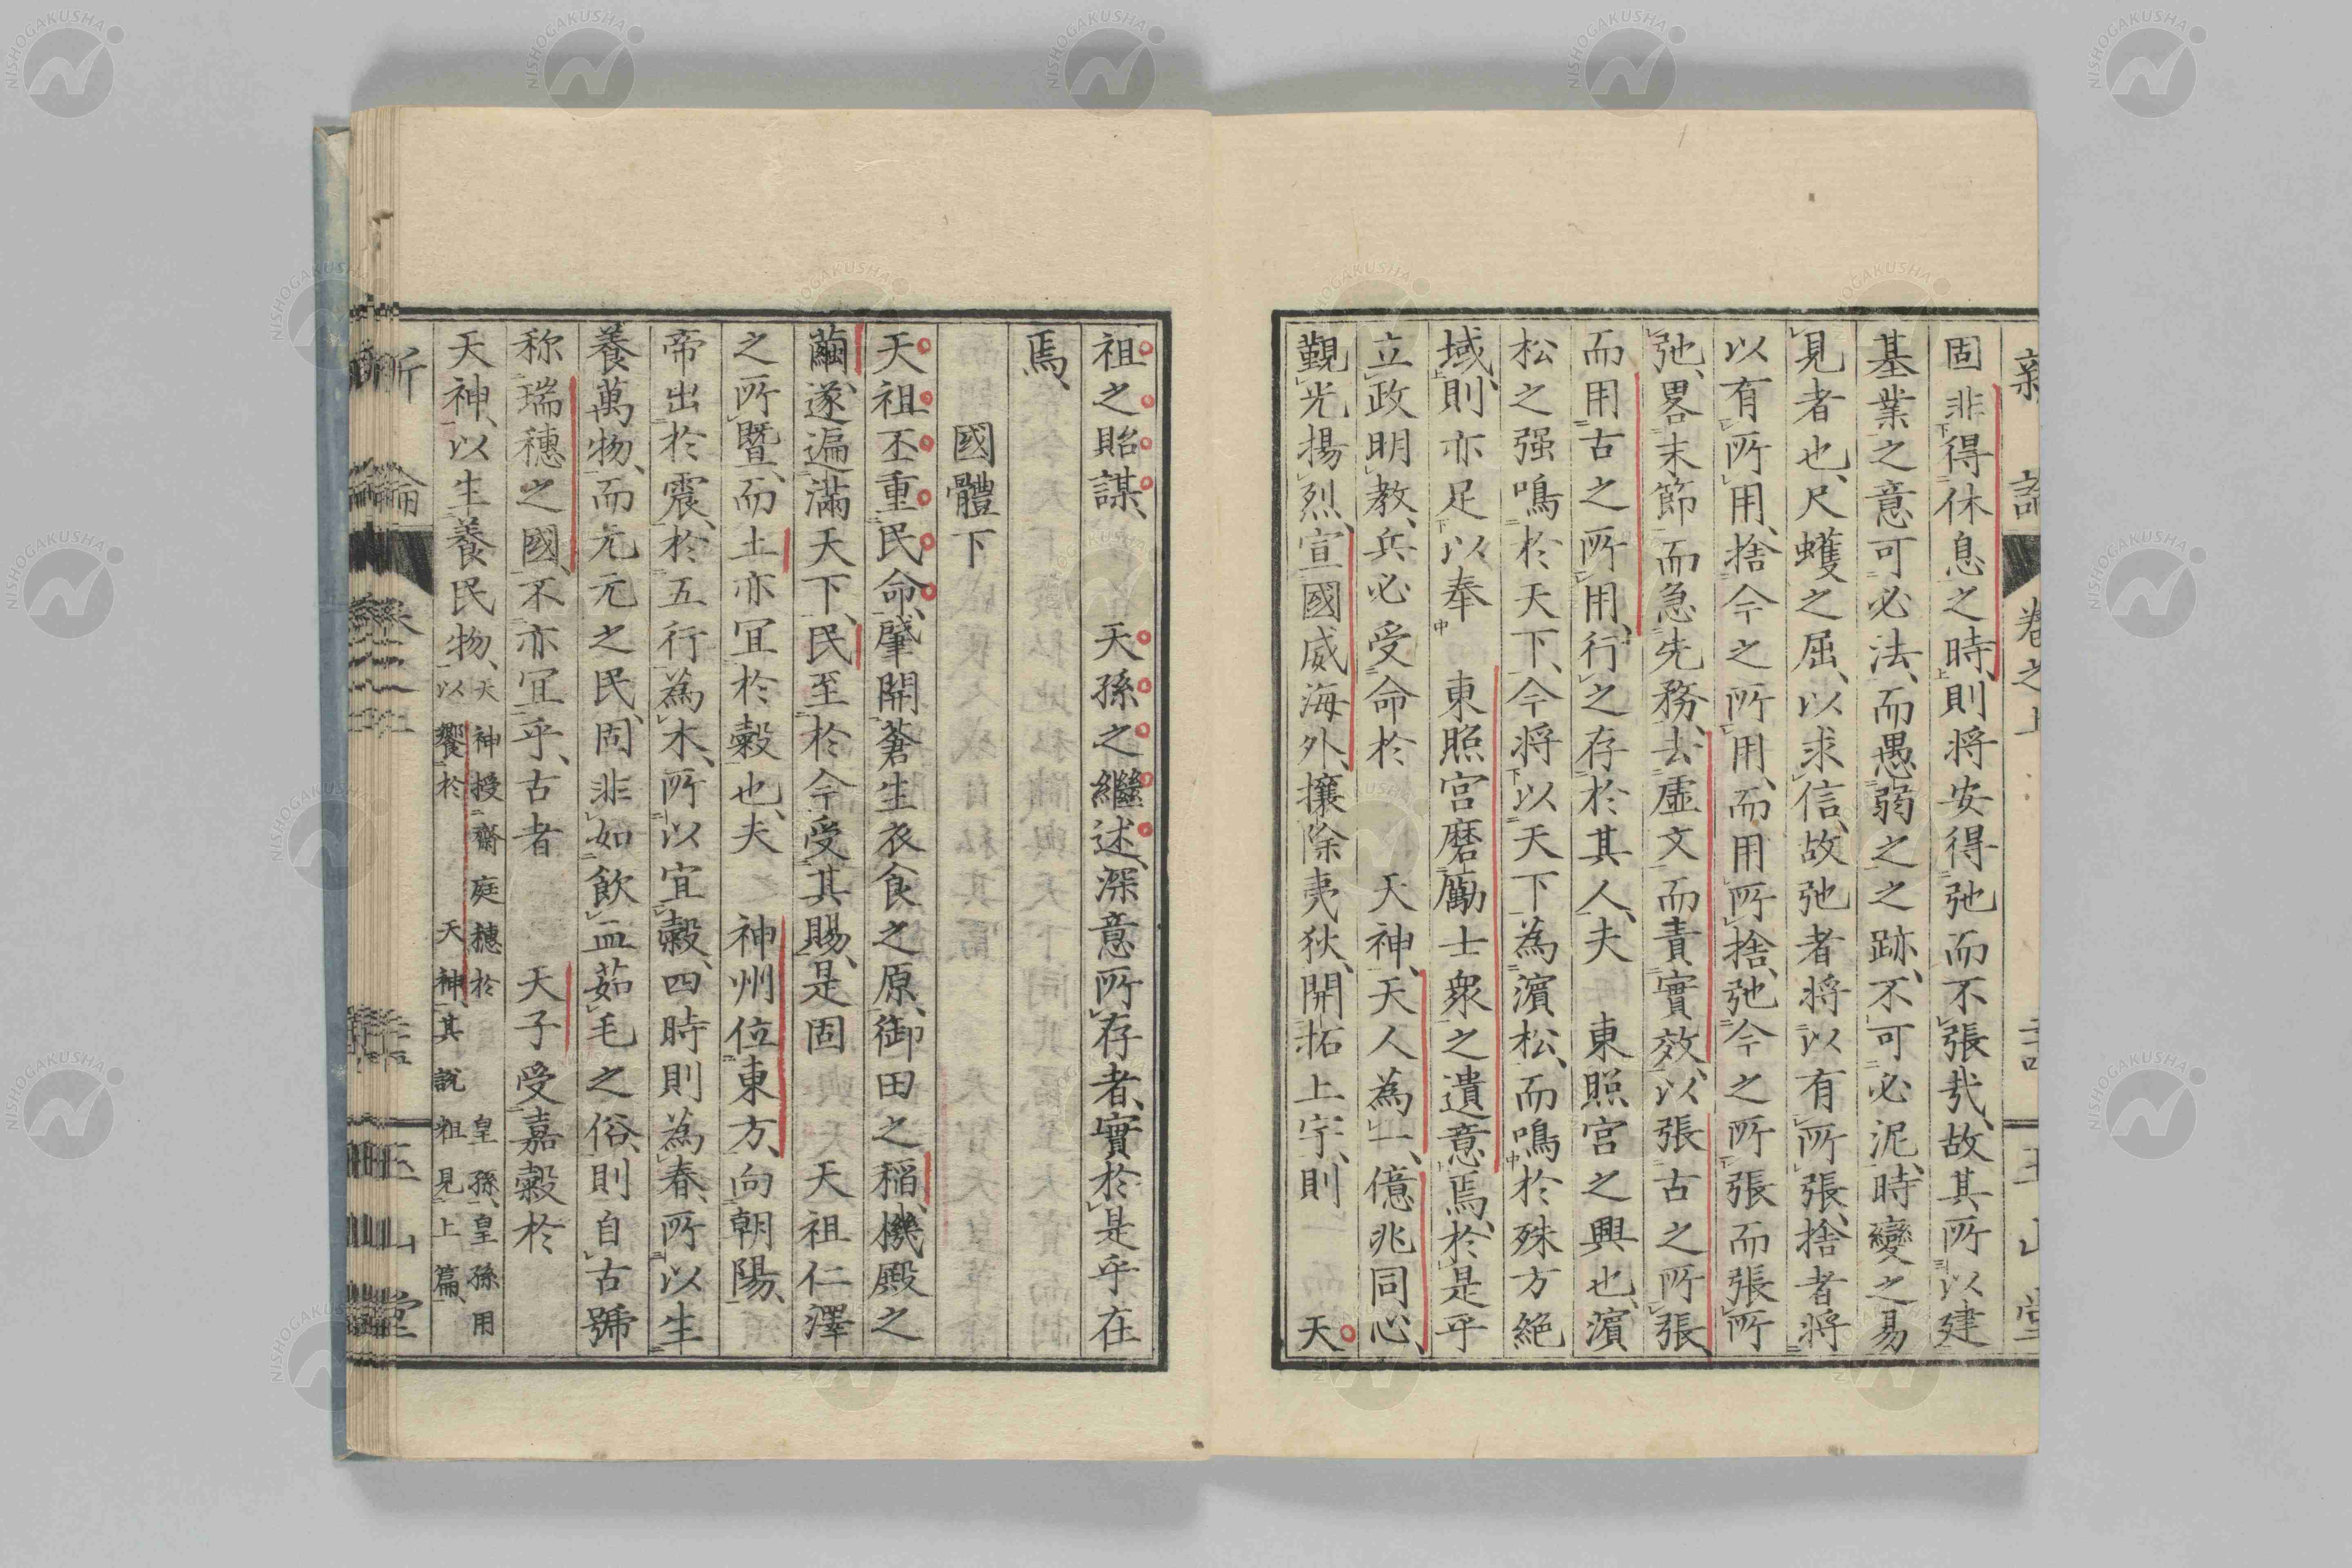 固非得休息之時、則将安得弛而不張㢤、故其所以建
基業之意可必法、而愚弱之之跡、不可必泥、時變之易
見者也、尺蠖之屈、以求信、故弛者将以有所張、捨者将
以有所用、捨今之所用、而用所捨、弛今之所張而張所
弛、畧末節而急先務、去虛文而責實效、以張古之所張
而用古之所用、行之存於其人、夫 東照宮之興也、濵
松之强鳴於天下、今将以天下為濵松、而鳴於殊方絶
域、則亦足以奉 東照宮磨勵士衆之遺意焉、於是乎
立政明教、兵必受命於 天神、天人為一、億兆同心、
覲光揚烈、宣國威海外、攘除夷狄、開拓土宇、則 天
祖之貽謀、 天孫之繼述、深意所存者、實於是乎在
焉、
國體下
天祖丕重民命、肇開蒼生衣食之原、御田之稲、機殿之
繭、遂遍滿天下、民至於今受其賜、是固 天祖仁澤
之所曁、而土亦冝於穀也、夫 神州位東方、向朝陽、
帝出於震、於五行為木、所以宜穀、四時則為春、所以生
養萬物、而元元之民、固非如飲血茹毛之俗、則自古號
称瑞穗之國、不亦冝乎、古者 天子受嘉穀於
天神、以生養民物、天神授齋庭穗於 皇孫、皇孫用
以饗於 天神、其說粗見上篇、
新論
卷之上
玉山堂